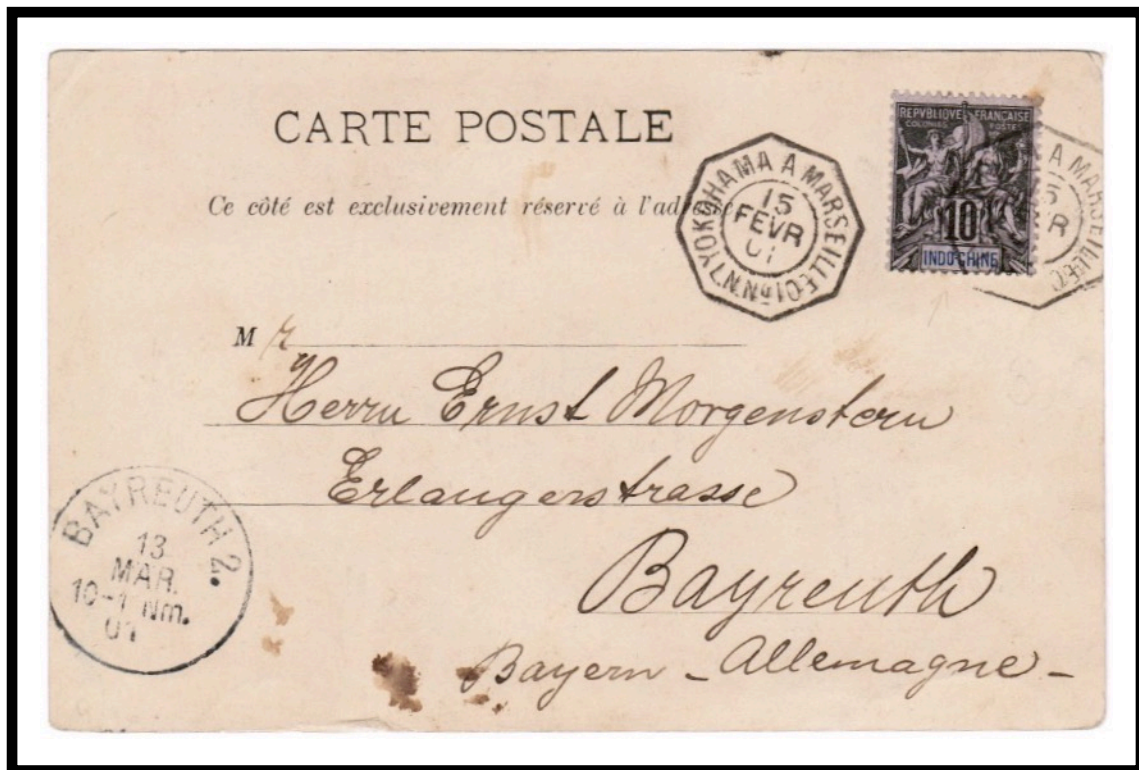 CARTE POSTALE
Ce côté est exclusivement réservé à l'adresse
YOKOHAMA A MARSEILLE
15
FEVR
01
REPVBLIQVE FRANÇAISE
COLONIES POSTES
10
INDO-CHINE
A MARSEILLE
5
R
M r
Herrn Ernst Morgenstern
Erlangerstrasse
Bayreuth
Bayern - Allemagne -
BAYREUTH 2.
13
MAR.
10-1 Nm.
01